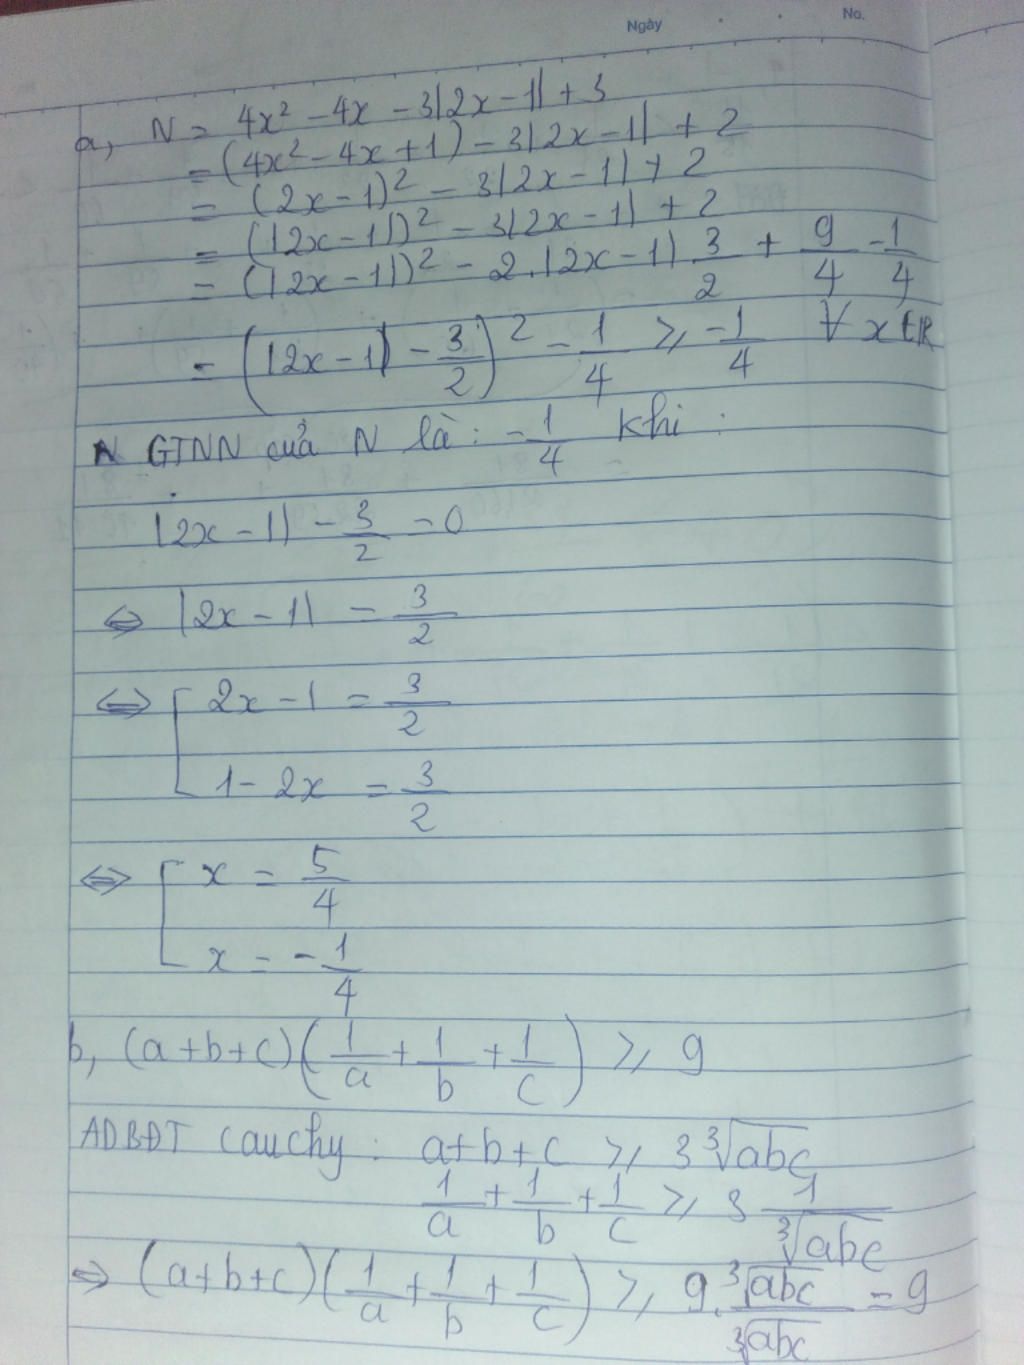 Ngày No.
a, N = 4x² - 4x - 3|2x-1| + 3
= (4x² - 4x + 1) - 3|2x-1| + 2
= (2x-1)² - 3|2x-1| + 2
= (|2x-1|)² - 3|2x-1| + 2
= (|2x-1|)² - 2.|2x-1| 3/2 + 9/4 - 1/4
= (|2x-1| - 3/2)² - 1/4 ⩾ -1/4 ∀ x ∈ R
GTNN của N là: -1/4 khi :
|2x-1| - 3/2 = 0
⇔ |2x-1| = 3/2
⇔ [ 2x-1 = 3/2
1-2x = 3/2
⇔ [ x = 5/4
x = -1/4
b, (a+b+c)(1/a + 1/b + 1/c) ⩾ 9
ADBĐT cauchy : a+b+c ⩾ 3∛abc
1/a + 1/b + 1/c ⩾ 3 1/∛abc
⇒ (a+b+c)(1/a + 1/b + 1/c) ⩾ 9. ∛abc/∛abc = 9